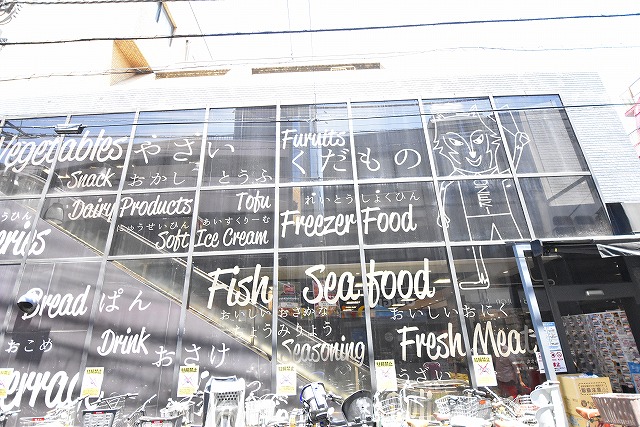 Vegetables やさい
Furutts
くだもの
Snack おかし とうふ
Tofu
れいとうしょくひん
Dairy Products
Freezer Food
にゅうせいひん
あいすくりーむ
Soft Ice Cream
Fish Sea food
Bread ぱん
おいしいおさかな
おいしいおにく
ちょうみりょう
おこめ
Drink おさけ
Seasoning
Fresh Meat